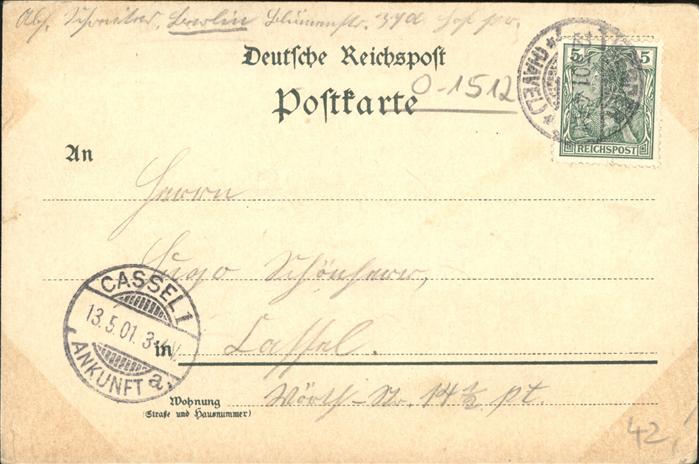 Abs. Schreiber, Berlin Blumenstr. Hof
Deutsche Reichspost
Postkarte
0-1512
(HAVEL)
5 5
REICHSPOST
An
Herrn
Hugo Schönherr,
CASSEL 1
13.5.01. 3
ANKUNFT a.
in Cassel.
Wohnung
(Straße und Hausnummer)
Wörth-Str. 14 1/2 pt.
42,